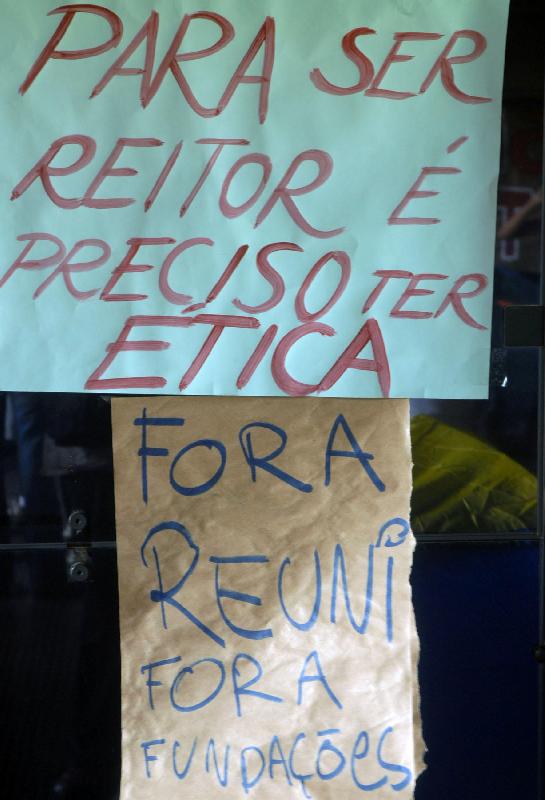 PARA SER
REITOR É
PRECISO TER
ÉTICA
FORA
REUNI
FORA
FUNDAÇÕES